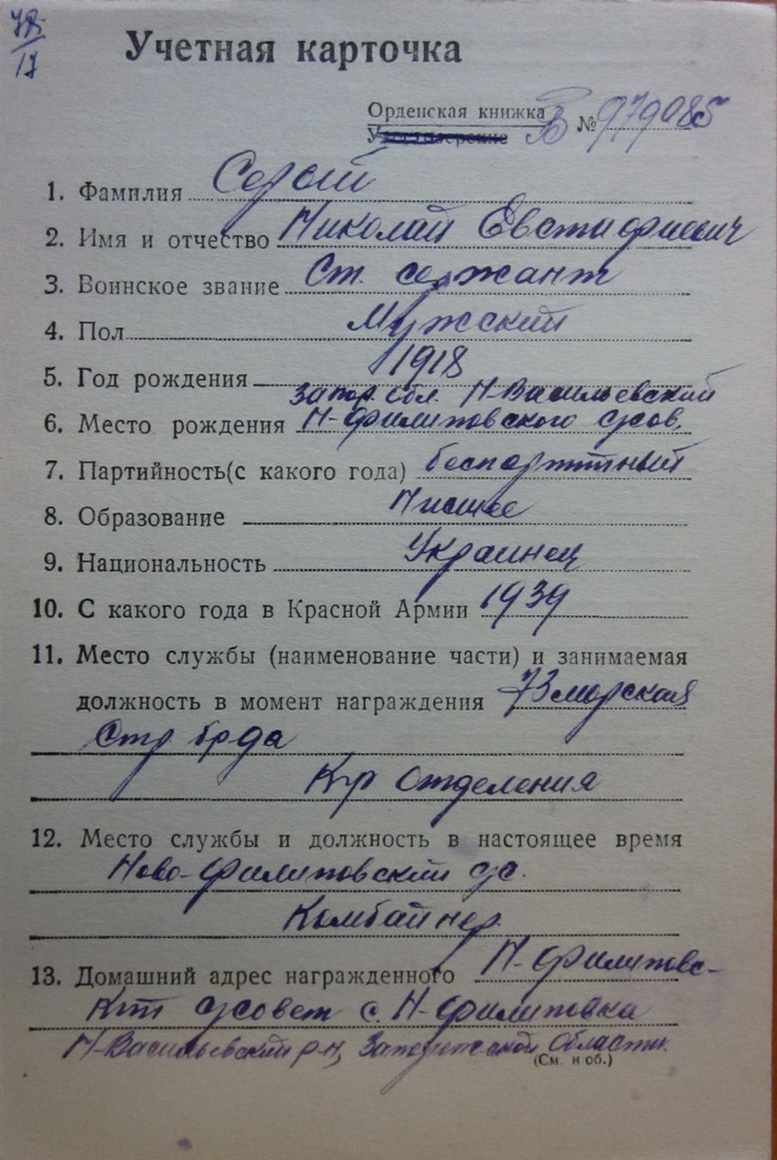 78/17
Учетная карточка
Орденская книжка В № 979085
Удостоверение
1. Фамилия Серый
2. Имя и отчество Николай Евстафиевич
3. Воинское звание Ст. сержант
4. Пол Мужской
5. Год рождения 1918
Запор. обл. Н-Васильевский
6. Место рождения Н-Филиповского с/сов.
7. Партийность(с какого года) беспартийный
8. Образование Низшее
9. Национальность Украинец
10. С какого года в Красной Армии 1939
11. Место службы (наименование части) и занимаемая
должность в момент награждения 73 морская
Стр бр-да
К-р Отделения
12. Место службы и должность в настоящее время
Ново-Филиповский с/с.
Комбайнер.
13. Домашний адрес награжденного Н-Филиповс-
кий с/совет с. Н-Филиповка
Н-Васильевский р-н, Запорожской Области.
(См. н об.)